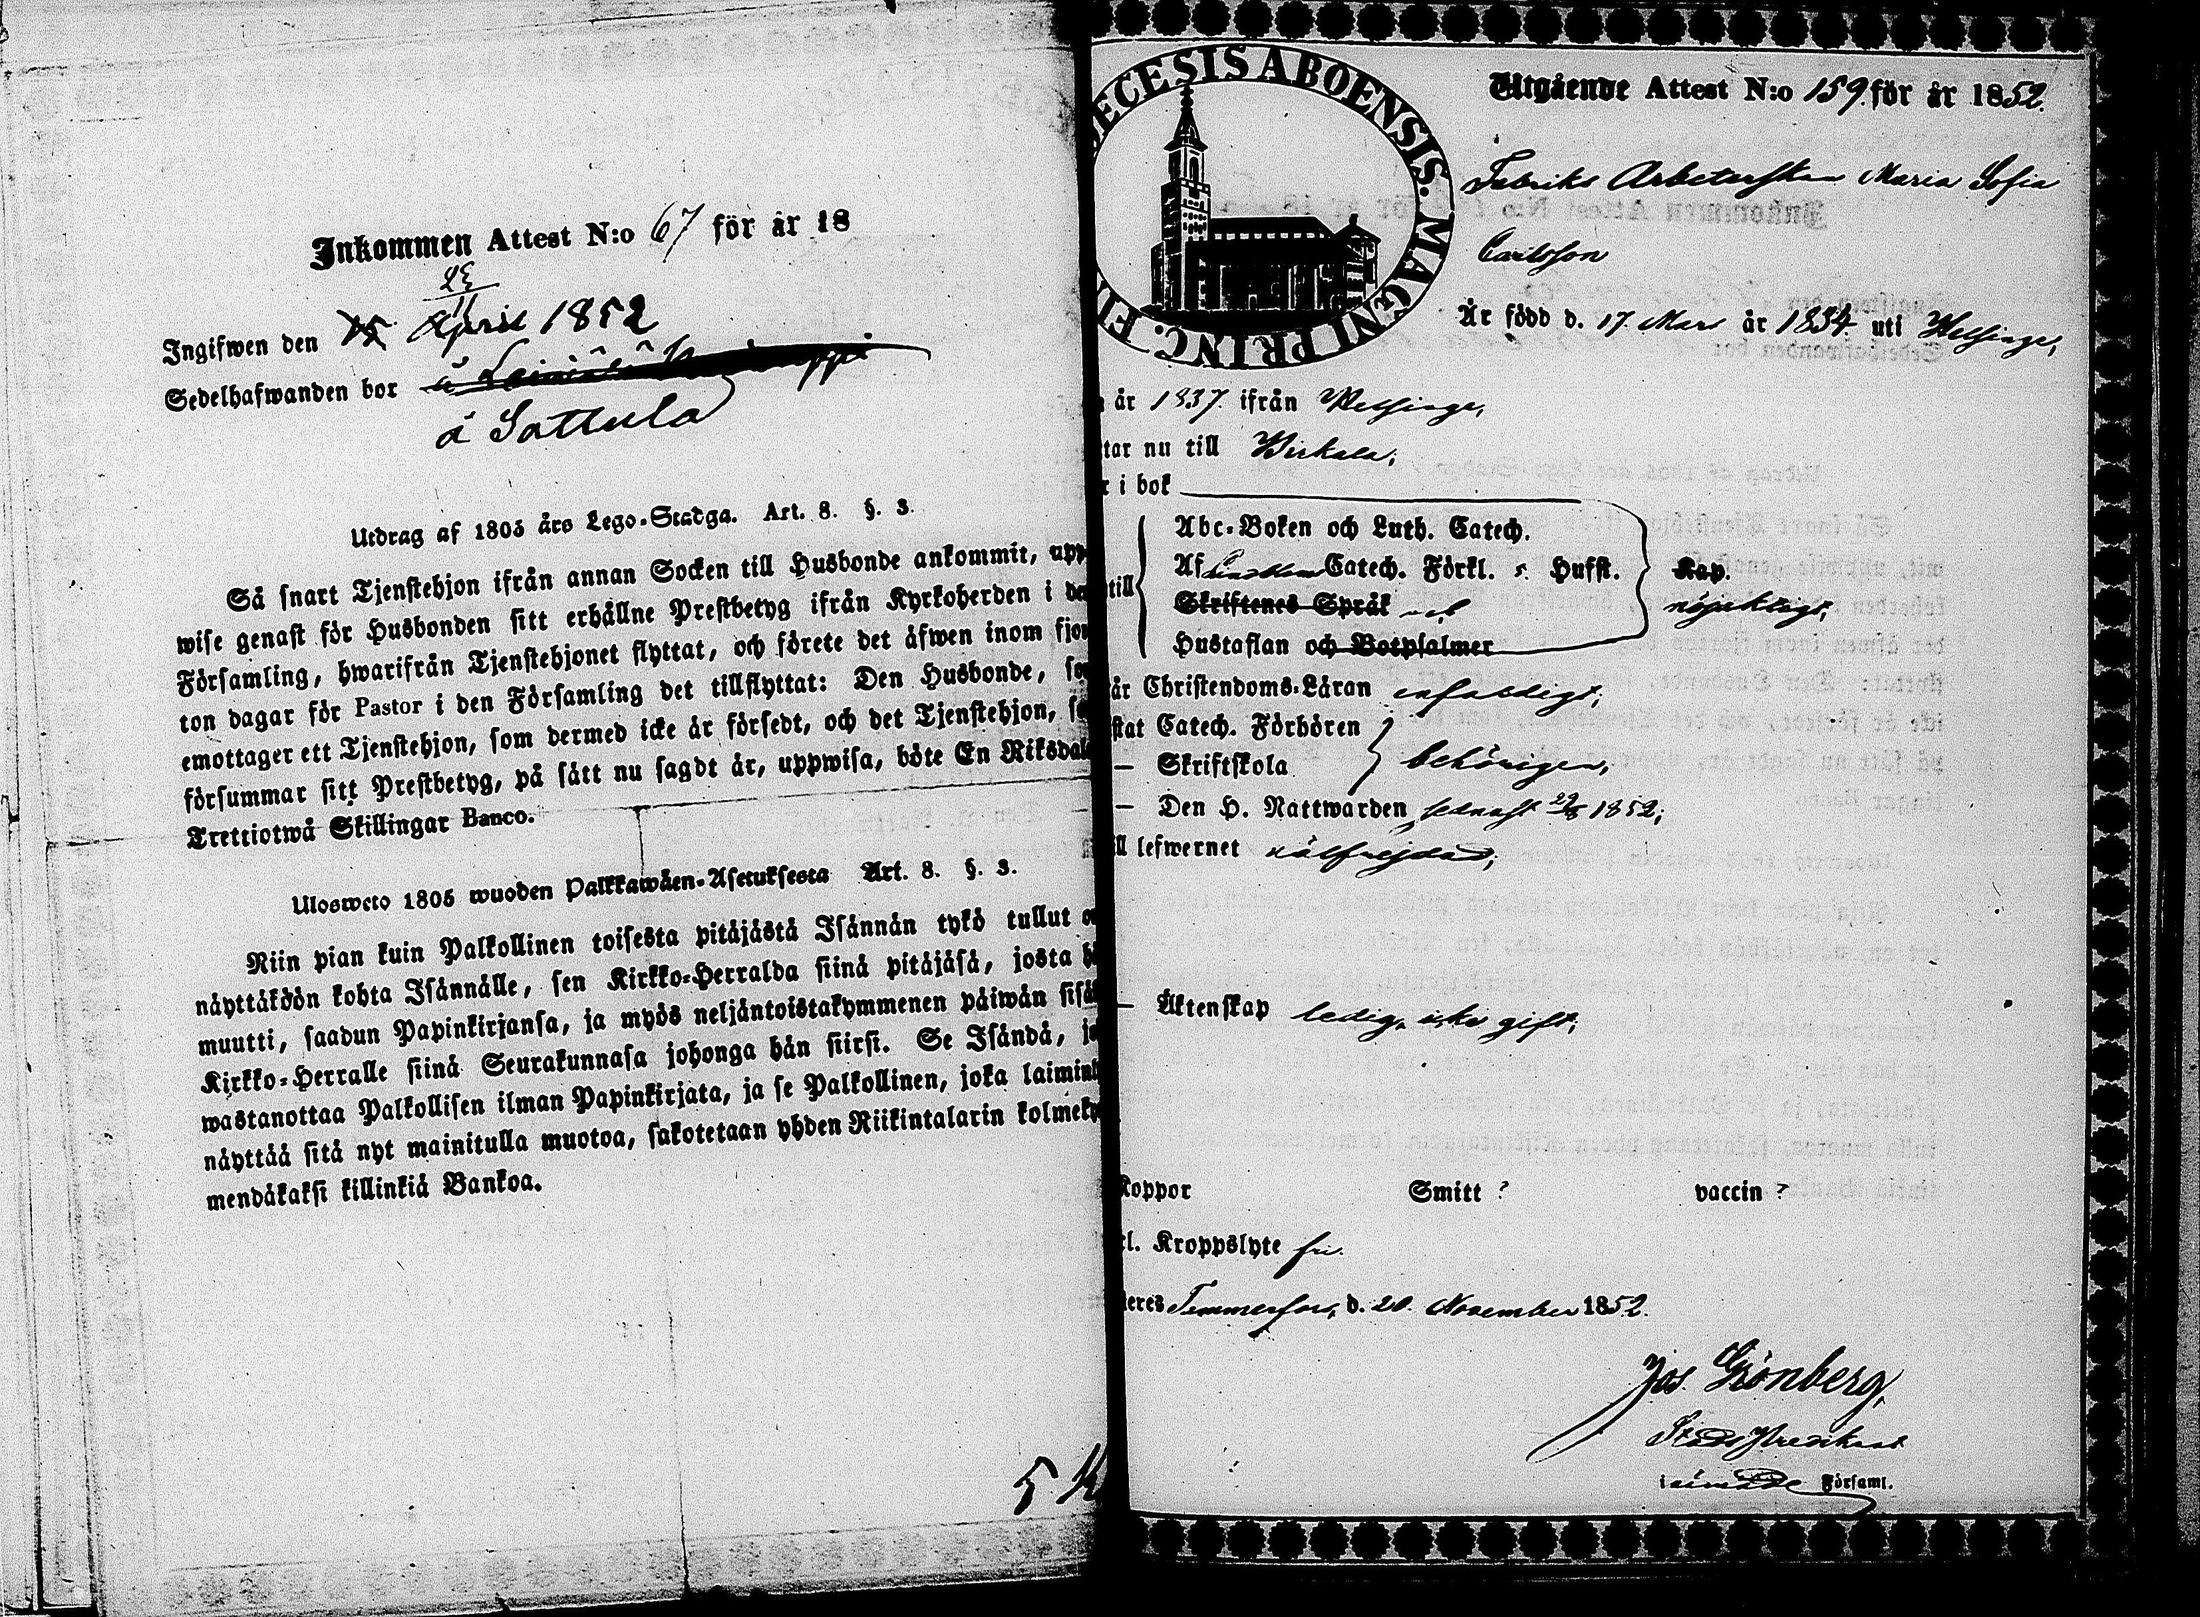 Inkommen Attest N:o 67 för år 18
Ingifwen den April 1852
Sedelhafwanden bor
å Sattula
Utdrag af 1805 års Lego-Stadga. Art. 8. §. 3.
Så snart Tjenstehjon ifrån annan Socken till Husbonde ankommit, upp
wise genast för Husbonden sitt erhållne Prestbetyg ifrån Kyrkoherden i de
Församling, hwarifrån Tjenstehjonet flyttat, och förete det äfwen inom fjor
ton dagar för Pastor i den Församling det tillflyttat: Den Husbonde, so
emottager ett Tjenstehjon, som dermed icke är försedt, och det Tjenstehjon, s
försummar sitt Prestbetyg, på sätt nu sagdt är, uppwisa, böte En Riksdal
Trettiotwå Skillingar Banco.
Uloswcto 1805 wuoden Palkkawäen-Asetuksesta Art. 8. §. 3.
Niin pian kuin Palkollinen toisesta pitäjästä Isännän tykö tullut o
näyttäköön kohta Isännälle, sen Kirkko-Herralda siinä pitäjäsä, josta h
muutti, saadun Papinkirjansa, ja myös neljäntoistakymmenen päiwän sisä
Kirkko-Herralle siinä Seurakunnasa johonga hän siirsi. Se Isändä, jo
wastanottaa Palkollisen ilman Papinkirjata, ja se Palkollinen, joka laimin
näyttää sitä nyt mainitulla muotoa, sakotetaan yhden Riikintalarin kolmeky
mendäkaksi killinkiä Bankoa.
ECESIS ABOENSIS. MAGNI PRINC. FI
Utgående Attest N:o 159 för år 1852.
Fabriks Arbeterskan Maria Sofia
Carlsson
Är född d. 17. Mars år 1834 uti Messinge,
år 1837. ifrån Messinge,
tar nu till Birkala;
r i bok
Abc-Boken och Luth. Catech.
Af Catech. Förkl. s. Husst. Kap.
till Skriftenes Språk och nöjaktigt;
Hustaflan och Botpsalmer
år Christendoms-Läran enfaldigt;
stat Catech. Förhören
— Skriftskola behörigen,
— Den H. Nattwarden sednast 29/8 1852;
ll lefwernet wälfrejdad;
— Äktenskap ledig, icke gift;
Koppor Smitt ? vaccin ?
l. Kroppslyte fri.
eres Tammerfors, d. 20. November 1852.
Jos. Grönberg,
StadsPredikant
i nämde Församl.